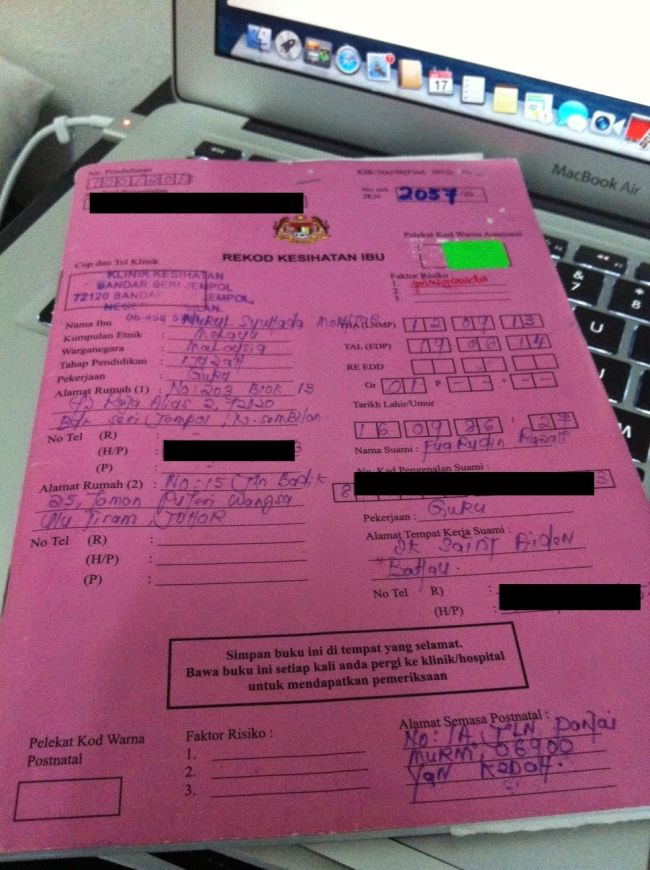 17
MacBook Air
No. Pendaftaran
KIK/1(a)/96(Pind. 2012)
No. siri
JKN
2057
Pelekat Kod Warna Antenatal
Cop dan Tel Klinik
REKOD KESIHATAN IBU
KLINIK KESIHATAN
BANDAR SERI JEMPOL
72120 BANDAR JEMPOL,
Faktor Risiko :
1.
2.
3.
Nama Ibu : Nurul Syuhada
Kumpulan Etnik : Melayu
Warganegara : Malaysia
Tahap Pendidikan : Ijazah
Pekerjaan : Guru
Alamat Rumah (1) : No: 203 Blok 13
Bdr Seri Jempol, N. Sembilan
No Tel (R) :
(H/P) :
(P) :
Alamat Rumah (2) : No: 15 Jln Badik
25, Taman Puteri Wangsa
Ulu Tiram, Johor
No Tel (R) :
(H/P) :
(P) :
THA (LNMP) 12 09 13
TAL (EDP) 19 06 14
RE EDD
Gr 01 P -- + --
Tarikh Lahir/Umur
16 09 86 / 27
Nama Suami :
No. Kad Pengenalan Suami :
Pekerjaan : Guru
Alamat Tempat Kerja Suami :
SK Saint Aidan
Bahau.
No Tel R) :
(H/P) :
Simpan buku ini di tempat yang selamat.
Bawa buku ini setiap kali anda pergi ke klinik/hospital
untuk mendapatkan pemeriksaan
Pelekat Kod Warna
Postnatal
Faktor Risiko :
1.
2.
3.
Alamat Semasa Postnatal :
No: 1A, Jln Pantai
Murni, 06900
Yan Kedah.